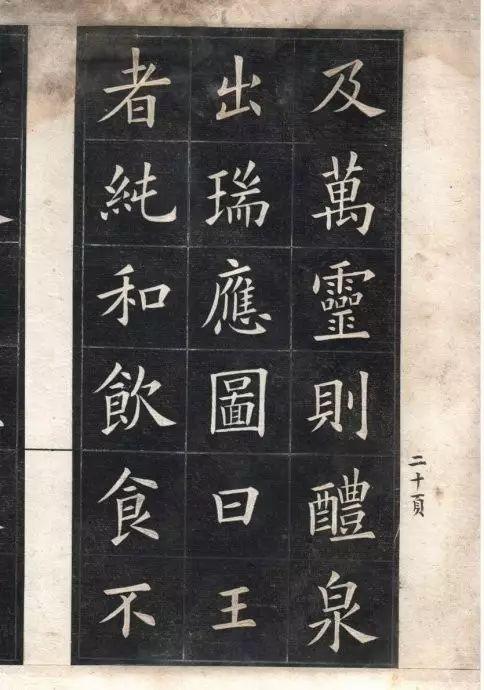 及萬靈則醴泉
出瑞應圖曰王
者純和飲食不
二十頁